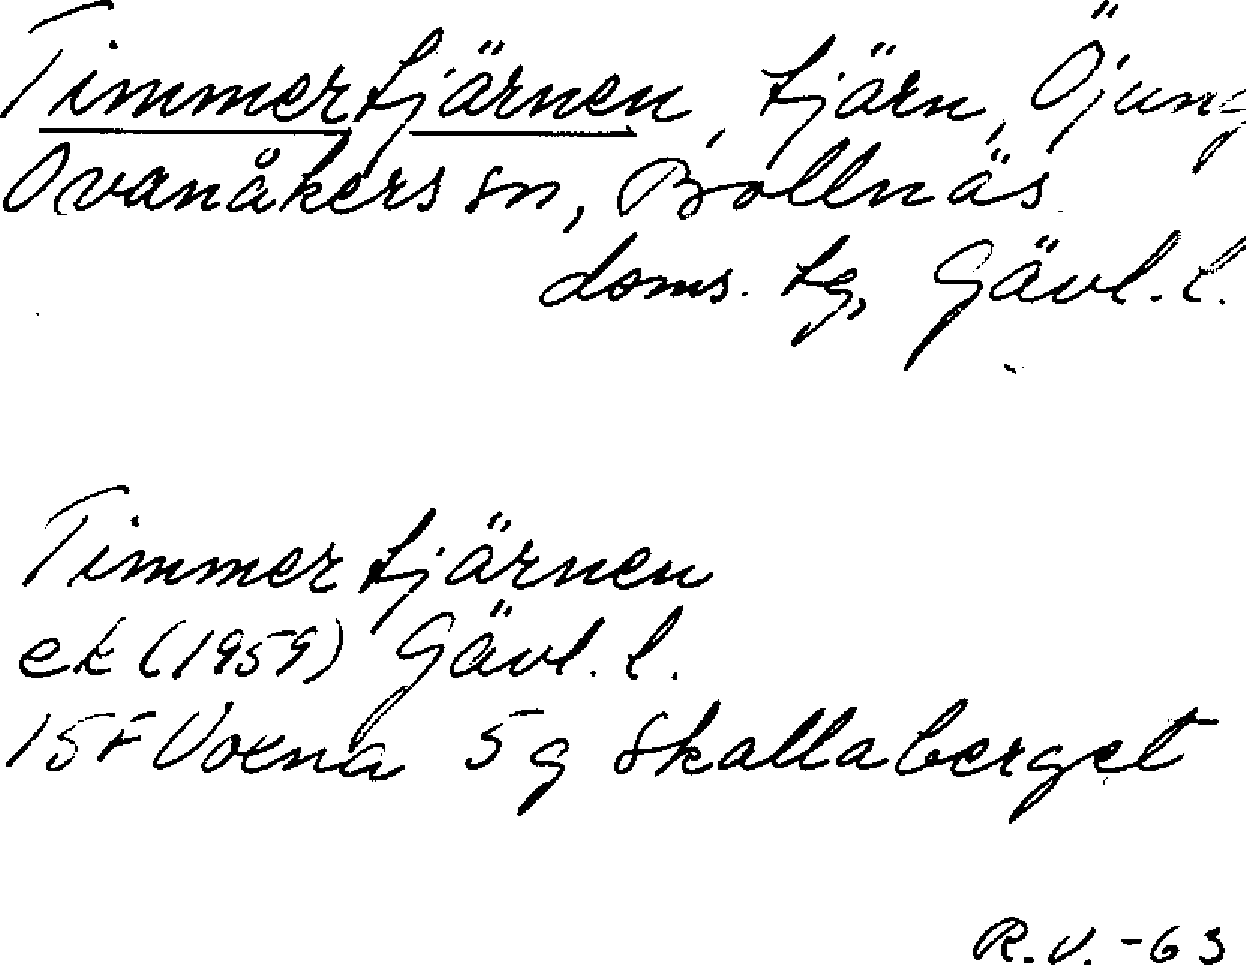 Timmertjärnen, tjärn, Öjung
Ovanåkers sn, Bollnäs
doms. tg, Gävl. l.
Timmertjärnen
ek (1959) Gävl. l.
15F Voxna 5g Skallaberget
R.V. -63